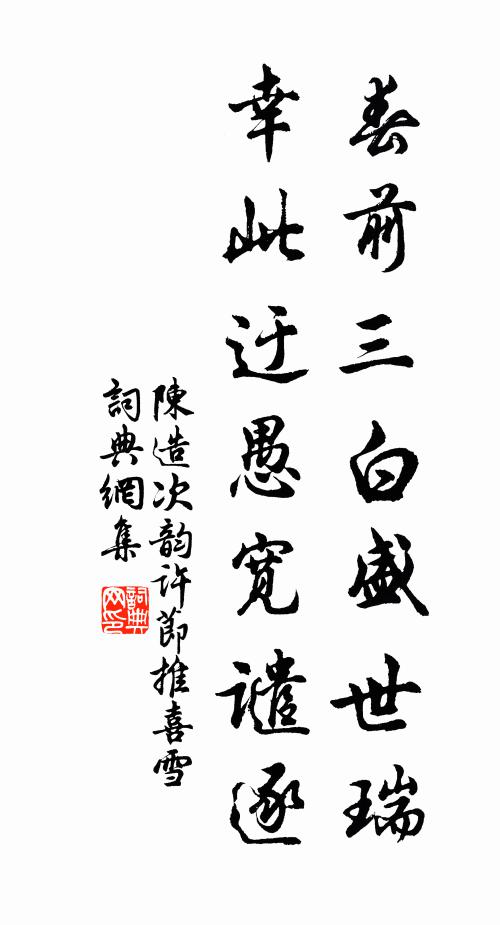 春前三白盛世瑞
幸此迂愚寬譴逐
陳造次韵許節推喜雪
詞典網集
詞典网印